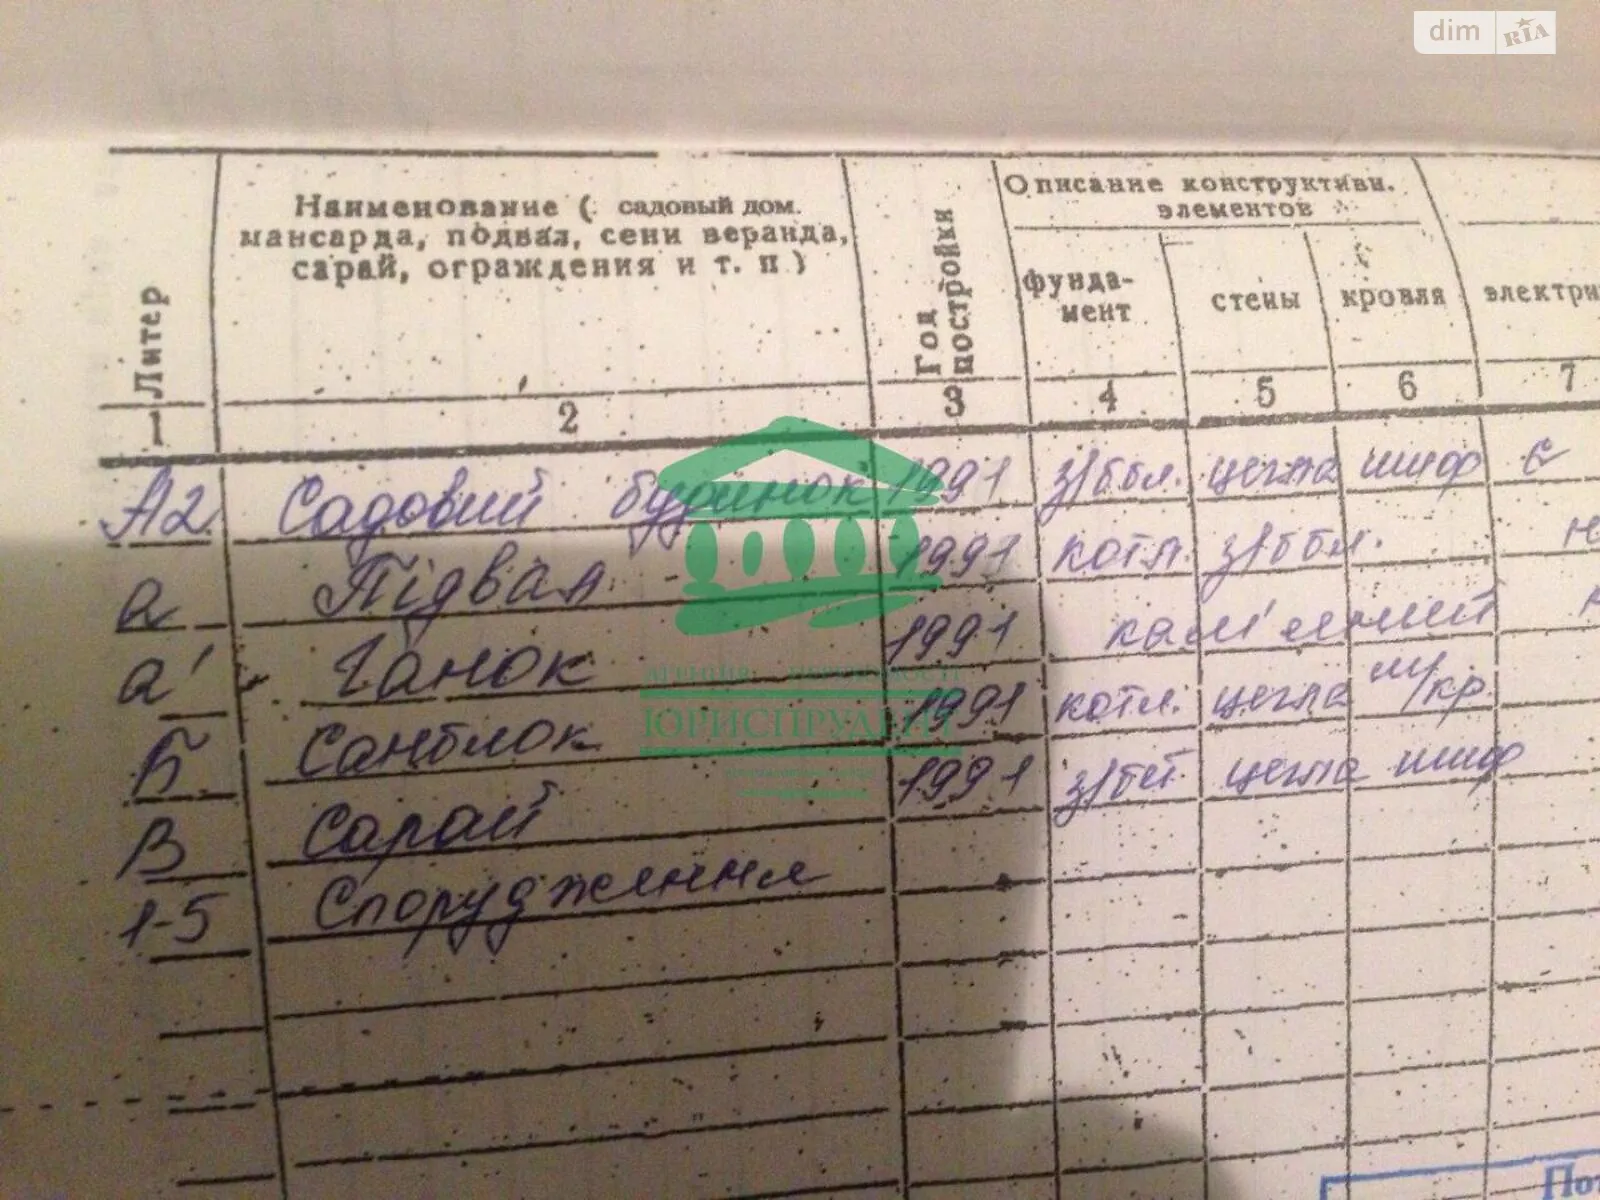 dim RIA
Наименование ( садовый дом.
мансарда, подвал, сени веранда,
сарай, ограждения и т. п )
Литер
Год постройки
Описание конструктивн.
элементов
фунда-
мент
стены
кровля
электри
1 2 3 4 5 6 7
А2 Садовий будинок 1991 з/ббл. цегла шиф є
а Підвал 1991 котл. з/ббл. н
а' Ганок 1991 кам'яний н
Б Санблок 1991 котл. цегла м/кр.
В Сарай 1991 з/бет цегла шиф
1-5 Спорудження
ЮРИСПРУДЕНТ
Пот